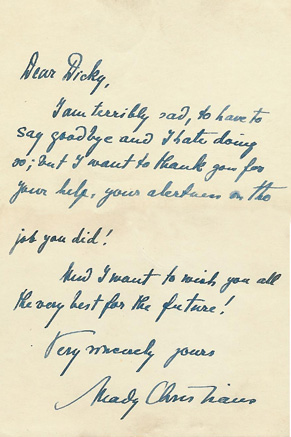 Dear Dicky,
I am terribly sad, to have to
say goodbye and I hate doing
so; but I want to thank you for
your help, your alertness on the
job you did!
And I want to wish you all
the very best for the future!
Very sincerely yours
Mady Christians